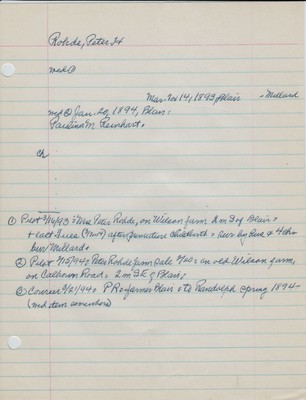 Rohde, Peter H
wed ①
Mar. Nov 14, 1893, Blair - Millard
wed ② Jan. 20, 1894, Blair:
Paulina M. Reinhart.
Ch
① Pilot 9/14/93: Mrs Peter Rohde, on Wilson farm 2m S of Blair:
after premature childbirth: sur by &
bur Millard.
② Pilot 94: Peter Rohde farm sale: on old Wilson farm,
on Calhoun Road: 2m SE of Blair:
③ Courier 94: P R farmer Blair to Randolph spring 1894-
(md item somewhere)